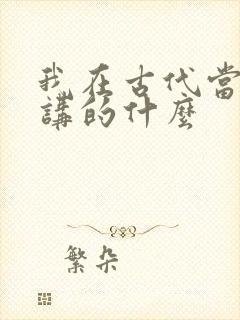 我在古代當
講的什麼
繁朵